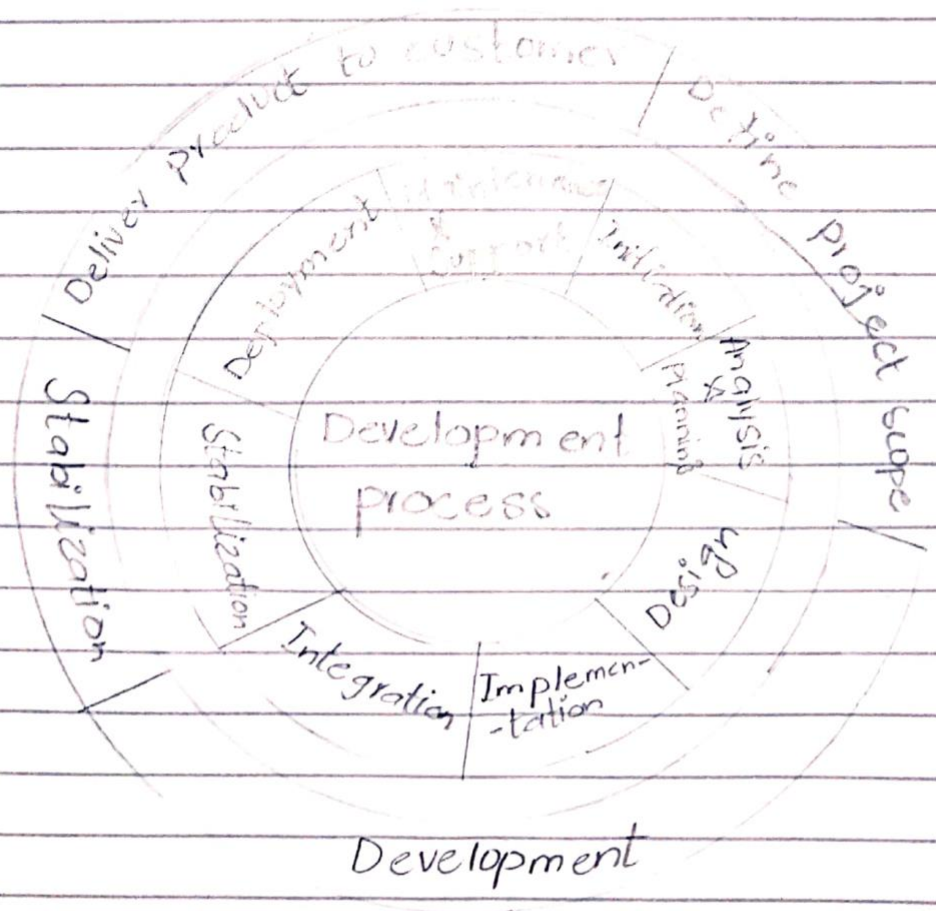 Deliver product to customer
Define project scope
Development
Stabilization
Maintenance
&
Support
Initiation
Analysis
&
Planning
Design
Implemen-
-tation
Integration
Stabilization
Deployment
Development
process